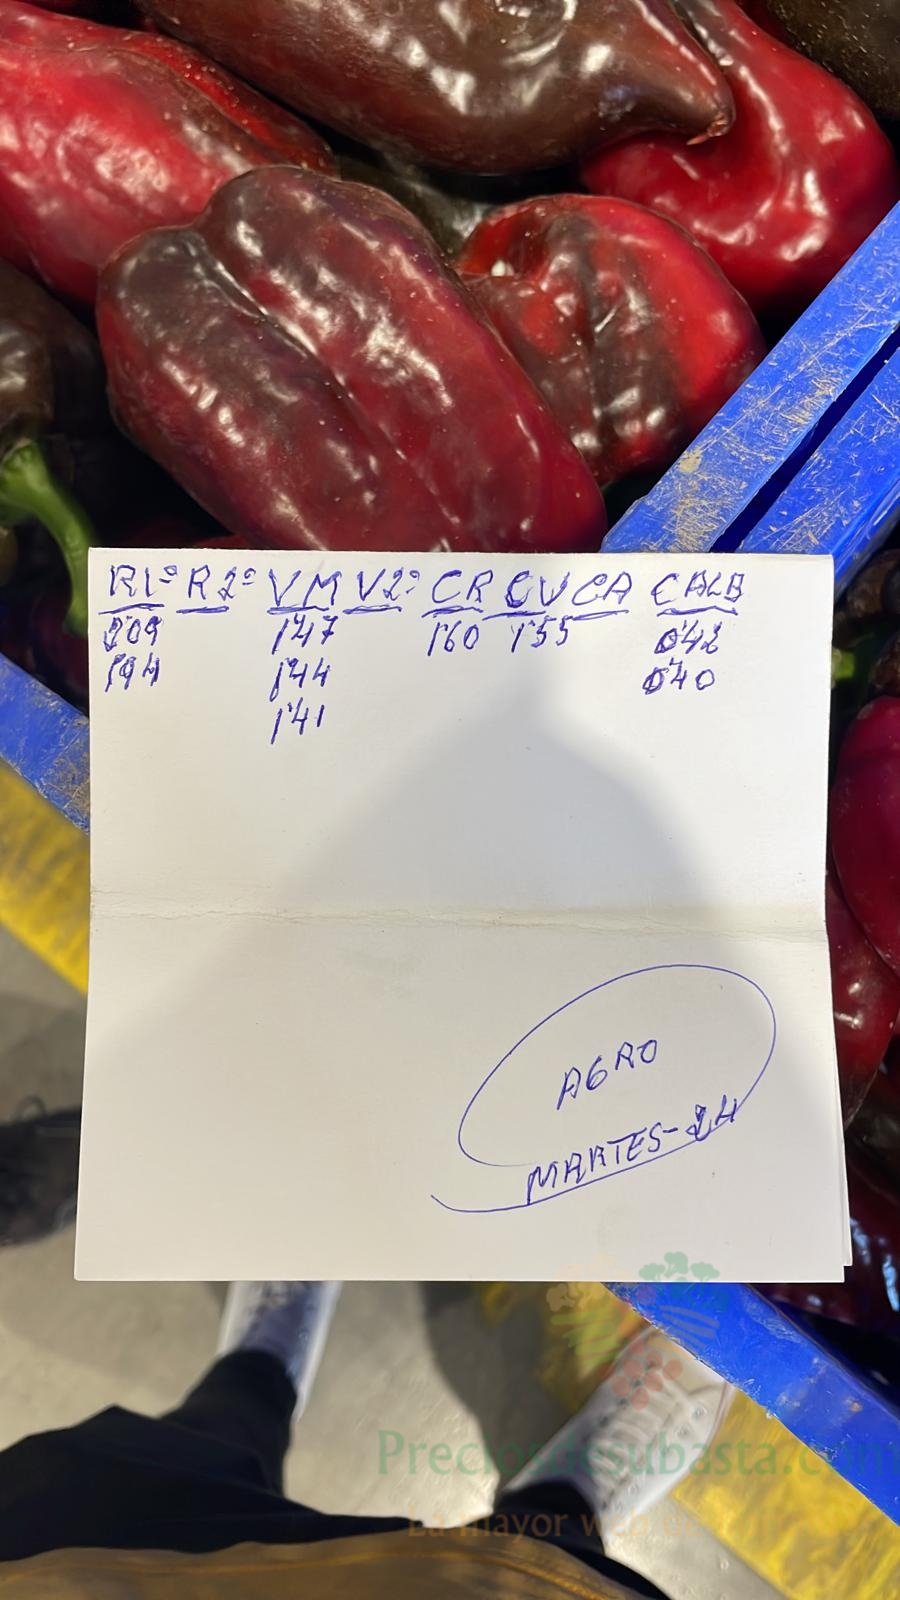 R1ª R2ª VM V2ª CR CV CA CALB
2'09 1'47 1'60 1'55 0'42
1'94 1'44 0'40
1'41
AGRO
MARTES-24
Preciosdesubasta.com
La mayor web